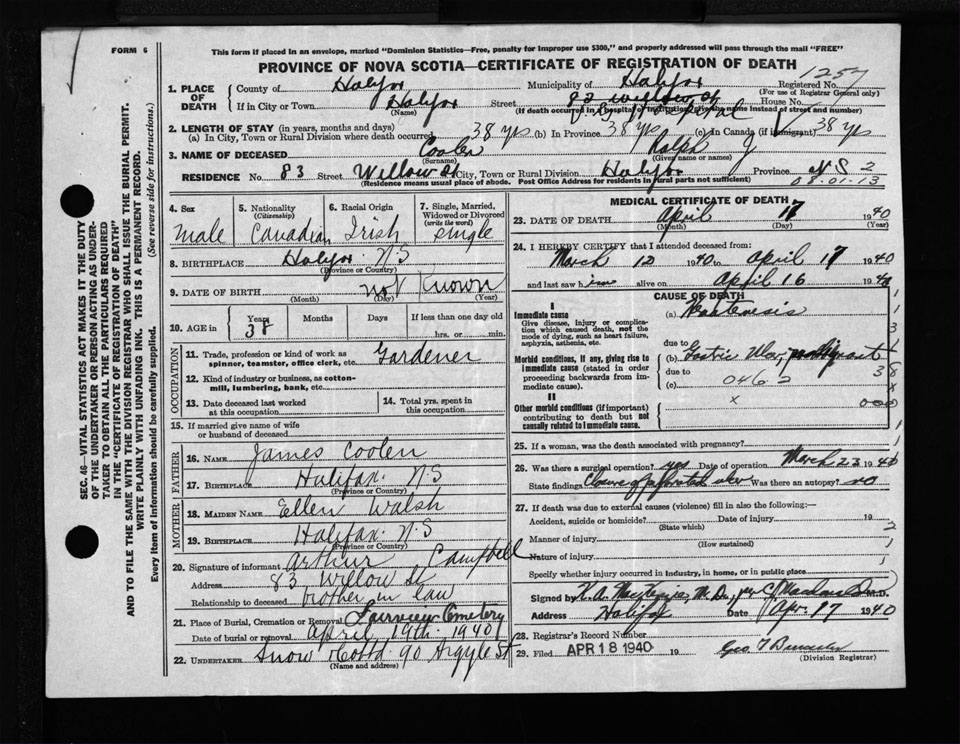 FORM 6
This form if placed in an envelope, marked "Dominion Statistics—Free, penalty for improper use $300," and properly addressed will pass through the mail "FREE"
PROVINCE OF NOVA SCOTIA—CERTIFICATE OF REGISTRATION OF DEATH
1257
SEC. 46—VITAL STATISTICS ACT MAKES IT THE DUTY
OF THE UNDERTAKER OR PERSON ACTING AS UNDER-
TAKER TO OBTAIN ALL THE PARTICULARS REQUIRED
IN THE "CERTIFICATE OF REGISTRATION OF DEATH"
AND TO FILE THE SAME WITH THE DIVISION REGISTRAR WHO SHALL ISSUE THE BURIAL PERMIT.
WRITE PLAINLY WITH UNFADING INK. THIS IS A PERMANENT RECORD.
Every item of information should be carefully supplied. (See reverse side for instructions.)
1. PLACE OF DEATH
County of Halifax Municipality of Halifax Registered No.
(For use of Registrar General only)
If in City or Town Halifax Street 83 Willow St House No.
(Name) (If death occurred in a hospital or institution, give the name instead of street and number)
Hospital
2. LENGTH OF STAY (in years, months and days)
(a) In City, Town or Rural Division where death occurred 38 yrs (b) In Province 38 yrs (c) In Canada (if immigrant) 38 yrs
3. NAME OF DECEASED Coolen Ralph J
(Surname) (Given name or names)
RESIDENCE No. 83 Street Willow St City, Town or Rural Division Halifax Province N S
(Residence means usual place of abode. Post Office Address for residents in rural parts not sufficient)
08-01-13
4. Sex 5. Nationality (Citizenship) 6. Racial Origin 7. Single, Married, Widowed or Divorced (write the word)
Male Canadian Irish single
8. BIRTHPLACE Halifax N S
(Province or Country)
9. DATE OF BIRTH not known
(Month) (Day) (Year)
10. AGE in Years Months Days If less than one day old
38 hrs. or min.
OCCUPATION
11. Trade, profession or kind of work as spinner, teamster, office clerk, etc. Gardener
12. Kind of industry or business, as cotton-mill, lumbering, bank, etc.
13. Date deceased last worked at this occupation
14. Total yrs. spent in this occupation
15. If married give name of wife or husband of deceased
FATHER
16. NAME James Coolen
17. BIRTHPLACE Halifax N.S
(Province or Country)
MOTHER
18. MAIDEN NAME Ellen Walsh
19. BIRTHPLACE Halifax N.S
(Province or Country)
20. Signature of informant Arthur Campbell
Address 83 Willow St
Relationship to deceased brother in law
21. Place of Burial, Cremation or Removal Fairview Cemetery
Date of burial or removal April 19th 1940
22. UNDERTAKER Snow & Co Ltd 90 Argyle St
(Name and address)
MEDICAL CERTIFICATE OF DEATH
23. DATE OF DEATH April 17 1940
(Month) (Day) (Year)
24. I HEREBY CERTIFY that I attended deceased from:
March 12 1940 to April 17 1940
and last saw him alive on April 16 1940
CAUSE OF DEATH
I
Immediate cause
Give disease, injury or complication which caused death, not the mode of dying, such as heart failure, asphyxia, asthenia, etc.
(a)
due to
Morbid conditions, if any, giving rise to immediate cause (stated in order proceeding backwards from immediate cause).
(b) Gastric Ulcer,
due to
(c) 046.2
II
Other morbid conditions (if important) contributing to death but not causally related to immediate cause.
x 000
25. If a woman, was the death associated with pregnancy?
26. Was there a surgical operation? yes Date of operation March 23 1940
State findings Closure of perforated ulcer Was there an autopsy? no
27. If death was due to external causes (violence) fill in also the following:—
Accident, suicide or homicide? Date of injury 19
(State which)
Manner of injury
(How sustained)
Nature of injury
Specify whether injury occurred in industry, in home, or in public place
Signed by M.D.
Address Halifax Date Apr. 17 1940
28. Registrar's Record Number
29. Filed APR 18 1940 19
(Division Registrar)